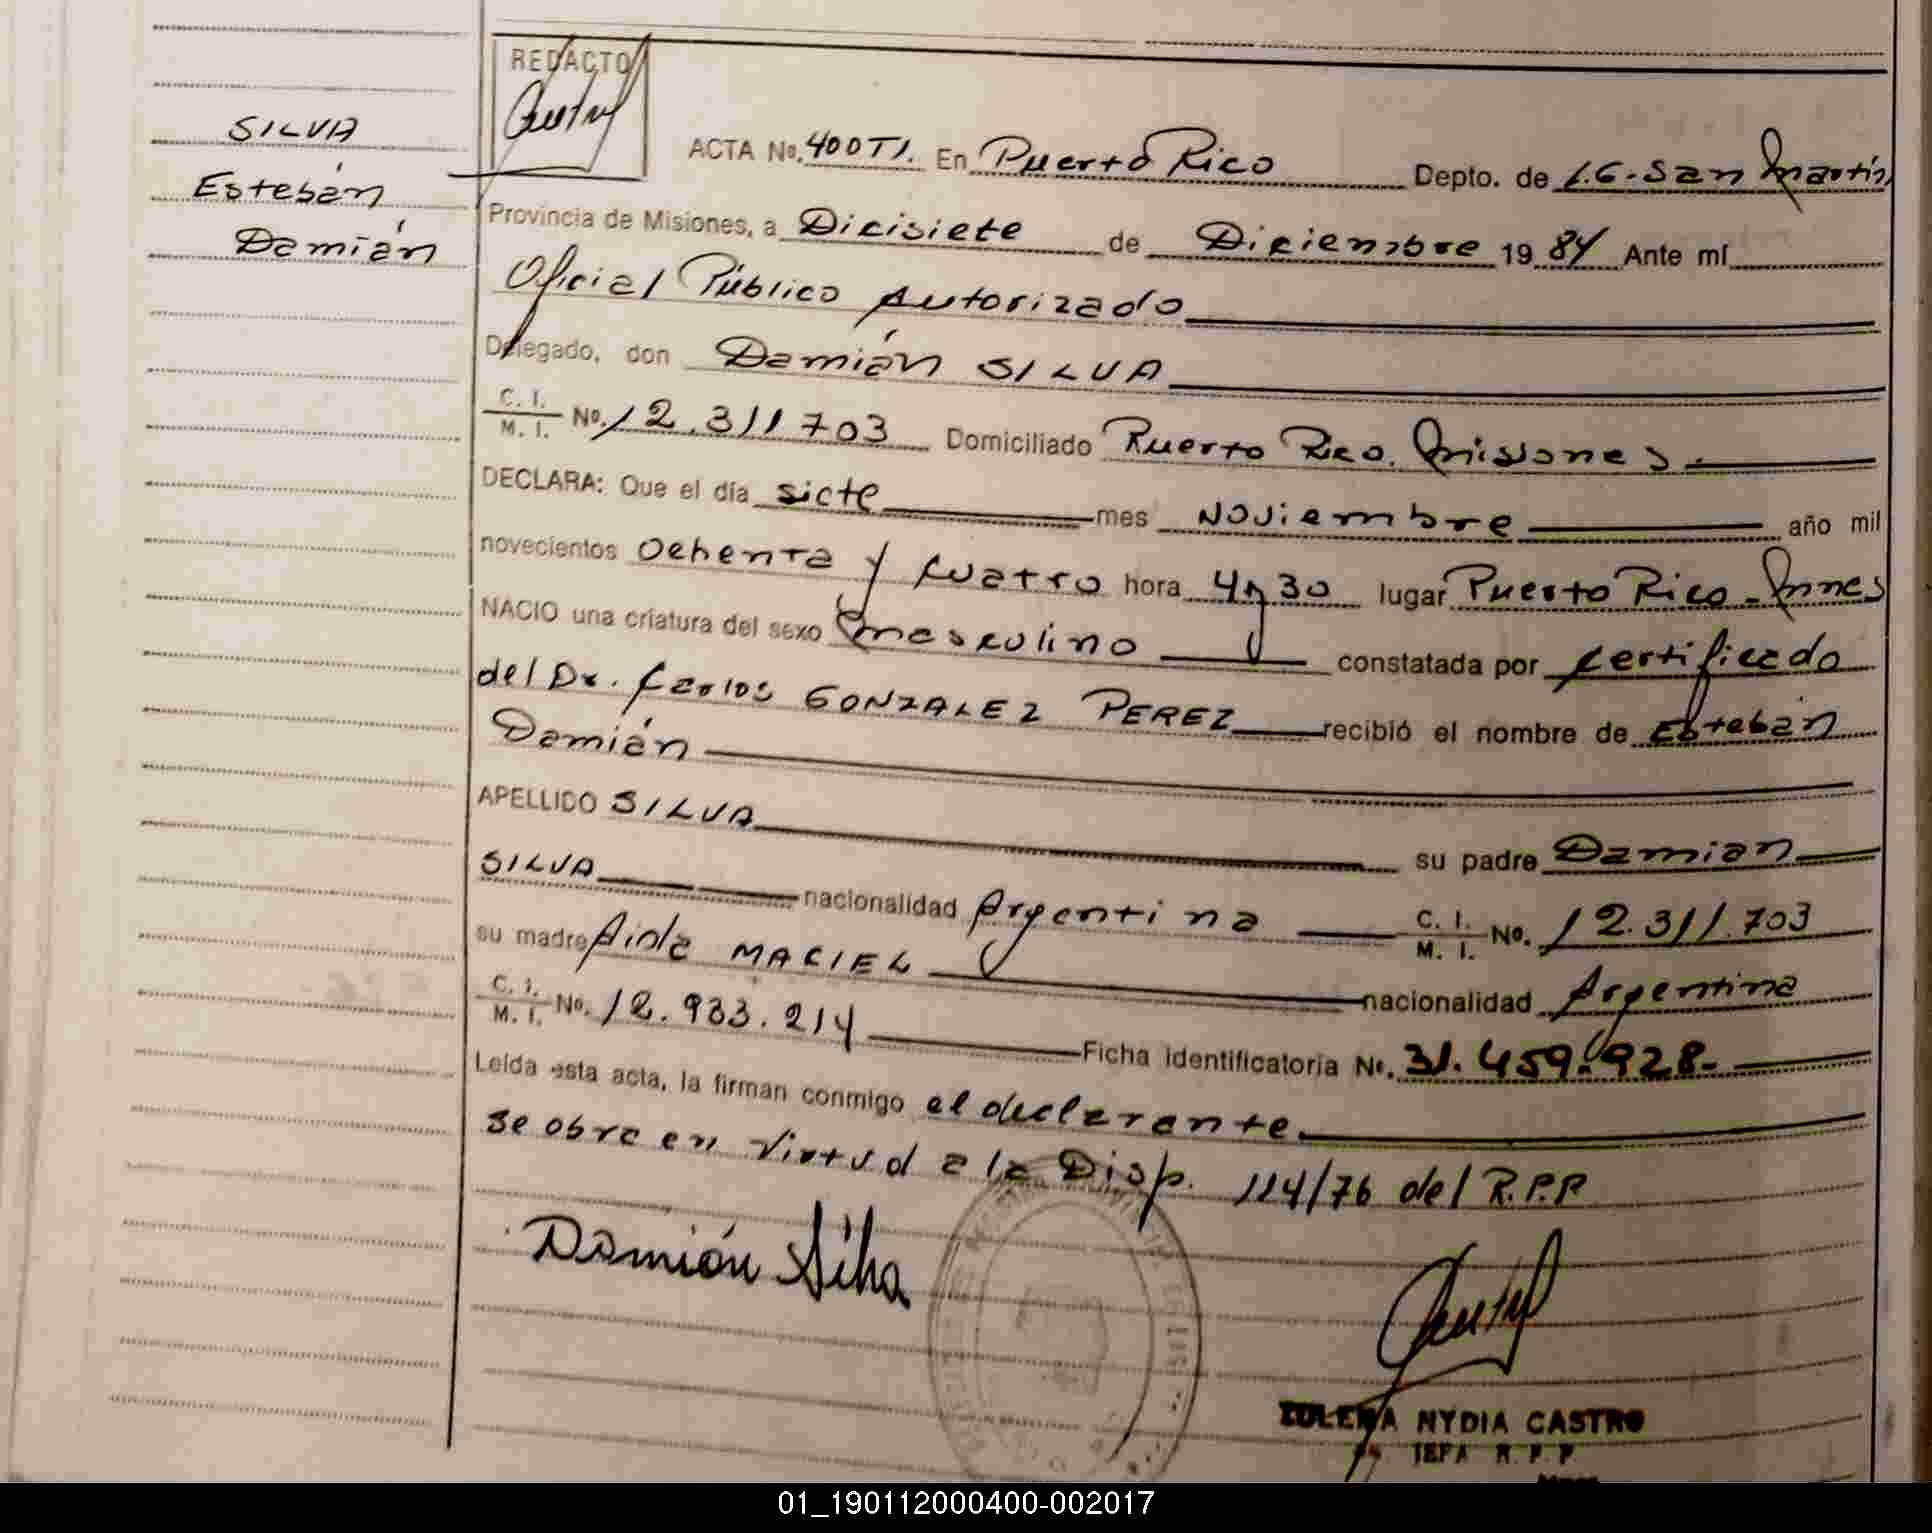 SILVA
Estebán
Damián
REDACTO
ACTA No. 400 TI. En Puerto Rico Depto. de L.G. San Martín,
Provincia de Misiones, a Dicisiete de Diciembre 1984 Ante mí
Oficial Público Autorizado
Delegado, don Damián SILVA
C. I. / M. I. No. 12.311703 Domiciliado Puerto Rico. Misiones.-
DECLARA: Que el día siete mes Noviembre año mil
novecientos ochenta y cuatro hora 4y30 lugar Puerto Rico - Mnes
NACIO una criatura del sexo masculino constatada por certificado
del Dr. Carlos GONZALEZ PEREZ recibió el nombre de Estebán
Damián
APELLIDO SILVA su padre Damian
SILVA nacionalidad Argentina C. I. / M. I. No. 12.311.703
su madre MACIEL nacionalidad Argentina
C. I. / M. I. No. 12.933.214 Ficha identificatoria No. 31.459.928-
Leída esta acta, la firman conmigo el declarante.
Se obra en virtud a la Disp. 114/76 del R.P.P
Damián Silva
ZULEMA NYDIA CASTRO
JEFA R. P. P
01_190112000400-002017